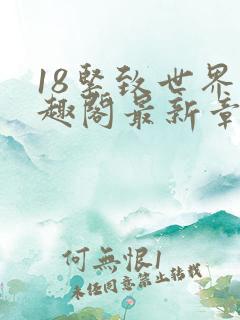 18紧致世界
趣阁最新章
何無恨1
未经同意禁止转载